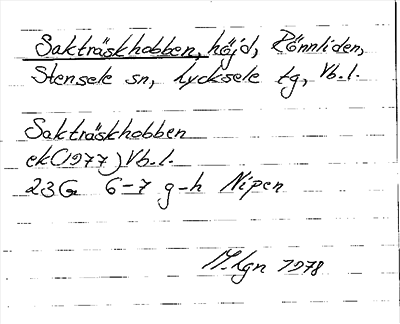 Sakträskhobben, höjd, Rönnliden,
Stensele sn, Lycksele tg, Vb.l.
Sakträskhobben
ek(1977) Vb.l.
23G 6-7 g-h Nipen
M.Lgn 1978